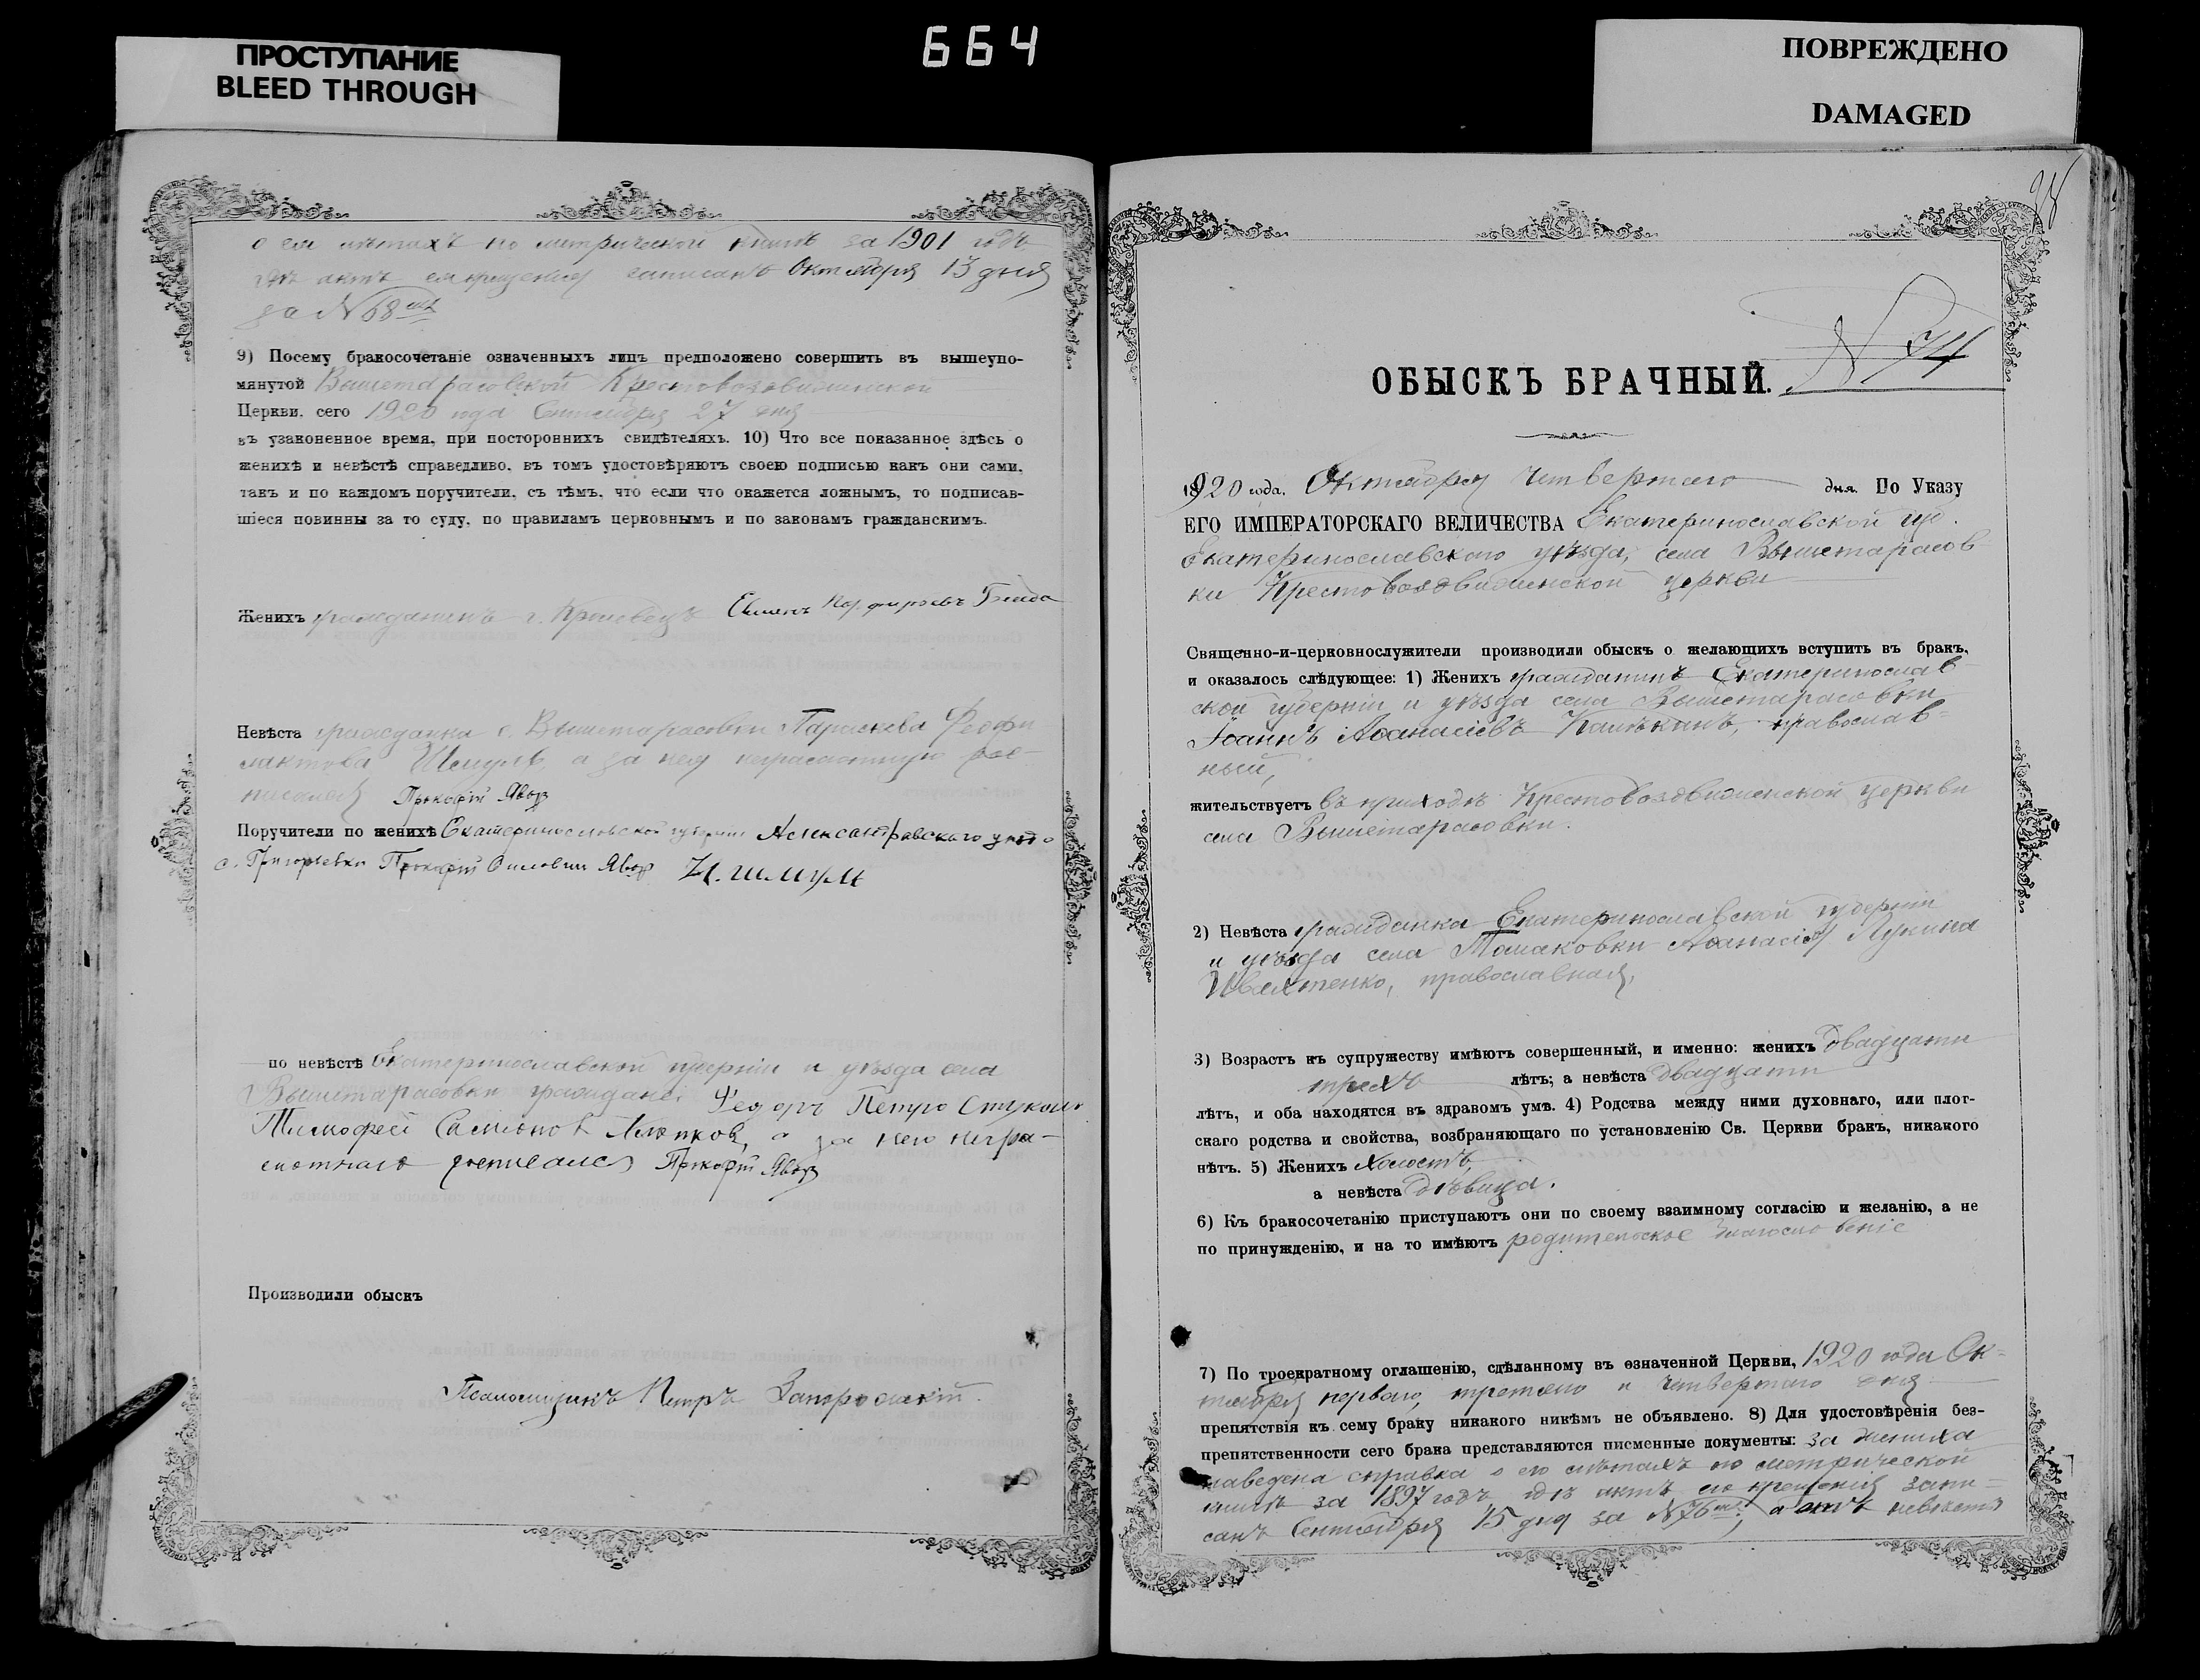 ПРОСТУПАНИЕ
BLEED THROUGH
664
ПОВРЕЖДЕНО
DAMAGED
о ея лѣтахъ по метрической книгѣ за 1901 годъ
гдѣ актъ ея крещенія записанъ Октября 13 дня
за № 68
9) Посему бракосочетаніе означенныхъ лицъ предположено совершить въ вышеупо-
мянутой Вышетарасовской Крестовоздвиженской
Церкви. сего 1920 года Сентября 27 дня
въ узаконенное время, при постороннихъ свидѣтеляхъ. 10) Что все показанное здѣсь о
женихѣ и невѣстѣ справедливо, въ томъ удостовѣряютъ своею подписью какъ они сами,
такъ и по каждомъ поручители, съ тѣмъ, что если что окажется ложнымъ, то подписав-
шіеся повинны за то суду, по правиламъ церковнымъ и по законамъ гражданскимъ.
Женихъ гражданинъ г. Кролевецъ
Невѣста гражданка с. Вышетарасовки Параскева Феофи
лактова Шмуль, а за нея неграмотную рос-
писался Прокофій Явор
Поручители по женихѣ Екатеринославской губерніи Александровского уезда
с. Григорьевки Прокофій Явор Н. Шмуль
по невѣстѣ Екатеринославской губерніи и уѣзда села
Вышетарасовки граждане: Федоръ Петро
Тимофей а за него негра-
мотнаго росписался Прокофій Явор
Производили обыскъ
Псаломщикъ Петръ Запорожскій.
28
№ 74
ОБЫСКЪ БРАЧНЫЙ.
1920 года. Октября четвертаго дня. По Указу
ЕГО ИМПЕРАТОРСКАГО ВЕЛИЧЕСТВА Екатеринославской губ.
Екатеринославскаго уѣзда, села Вышетарасов-
ки Крестовоздвиженской церкви
Священно-и-церковнослужители производили обыскъ о желающихъ вступить въ бракъ,
и оказалось слѣдующее: 1) Женихъ гражданинъ Екатеринослав
ской губерніи и уѣзда села Вышетарасовки
Іоаннъ Аѳанасіевъ православ-
ный,
жительствуетъ въ приходѣ Крестовоздвиженской церкви
села Вышетарасовки.
2) Невѣста гражданка Екатеринославской губерніи
и уѣзда села Томаковки Аѳанасія Лукина
Ивахненко, православная,
3) Возрастъ къ супружеству имѣютъ совершенный, и именно: женихъ двадцати
трехъ лѣтъ; а невѣста двадцати
лѣтъ, и оба находятся въ здравомъ умѣ. 4) Родства между ними духовнаго, или плот-
скаго родства и свойства, возбраняющаго по установленію Св. Церкви бракъ, никакого
нѣтъ. 5) Женихъ холостъ,
а невѣста дѣвица.
6) Къ бракосочетанію приступаютъ они по своему взаимному согласію и желанію, а не
по принужденію, и на то имѣютъ родительское благословеніе
7) По троекратному оглашенію, сдѣланному въ означенной Церкви, 1920 года Ок-
тября перваго, третяго и четвертаго дня
препятствія къ сему браку никакого никѣмъ не объявлено. 8) Для удостовѣренія без-
препятственности сего брака представляются писменные документы: за жениха
наведена справка о его лѣтахъ по метрической
книгѣ за 1897 годъ гдѣ актъ его крещенія запи-
санъ Сентября 15 дня за № 76 а невѣсты